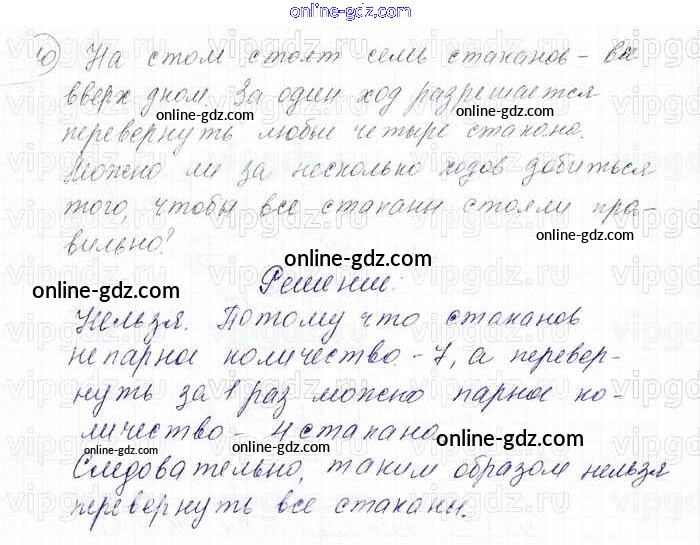 online-gdz.com
online-gdz.com
10) На стом стоят семь стаканов - все
вверх дном. За один ход разрешается
перевернуть любые четыре стакана.
Можно ли за несколько ходов добиться
того, чтобы все стаканы стояли пра-
вильно?
online-gdz.com
online-gdz.com
Решение:
online-gdz.com
Нельзя. Потому что стаканов
непарное количество - 7, а перевер-
нуть за 1 раз можно парное ко-
личество - 4 стакана.
online-gdz.com
online-gdz.com
online-gdz.com
Следовательно, таким образом нельзя
перевернуть все стаканы.
online-gdz.com